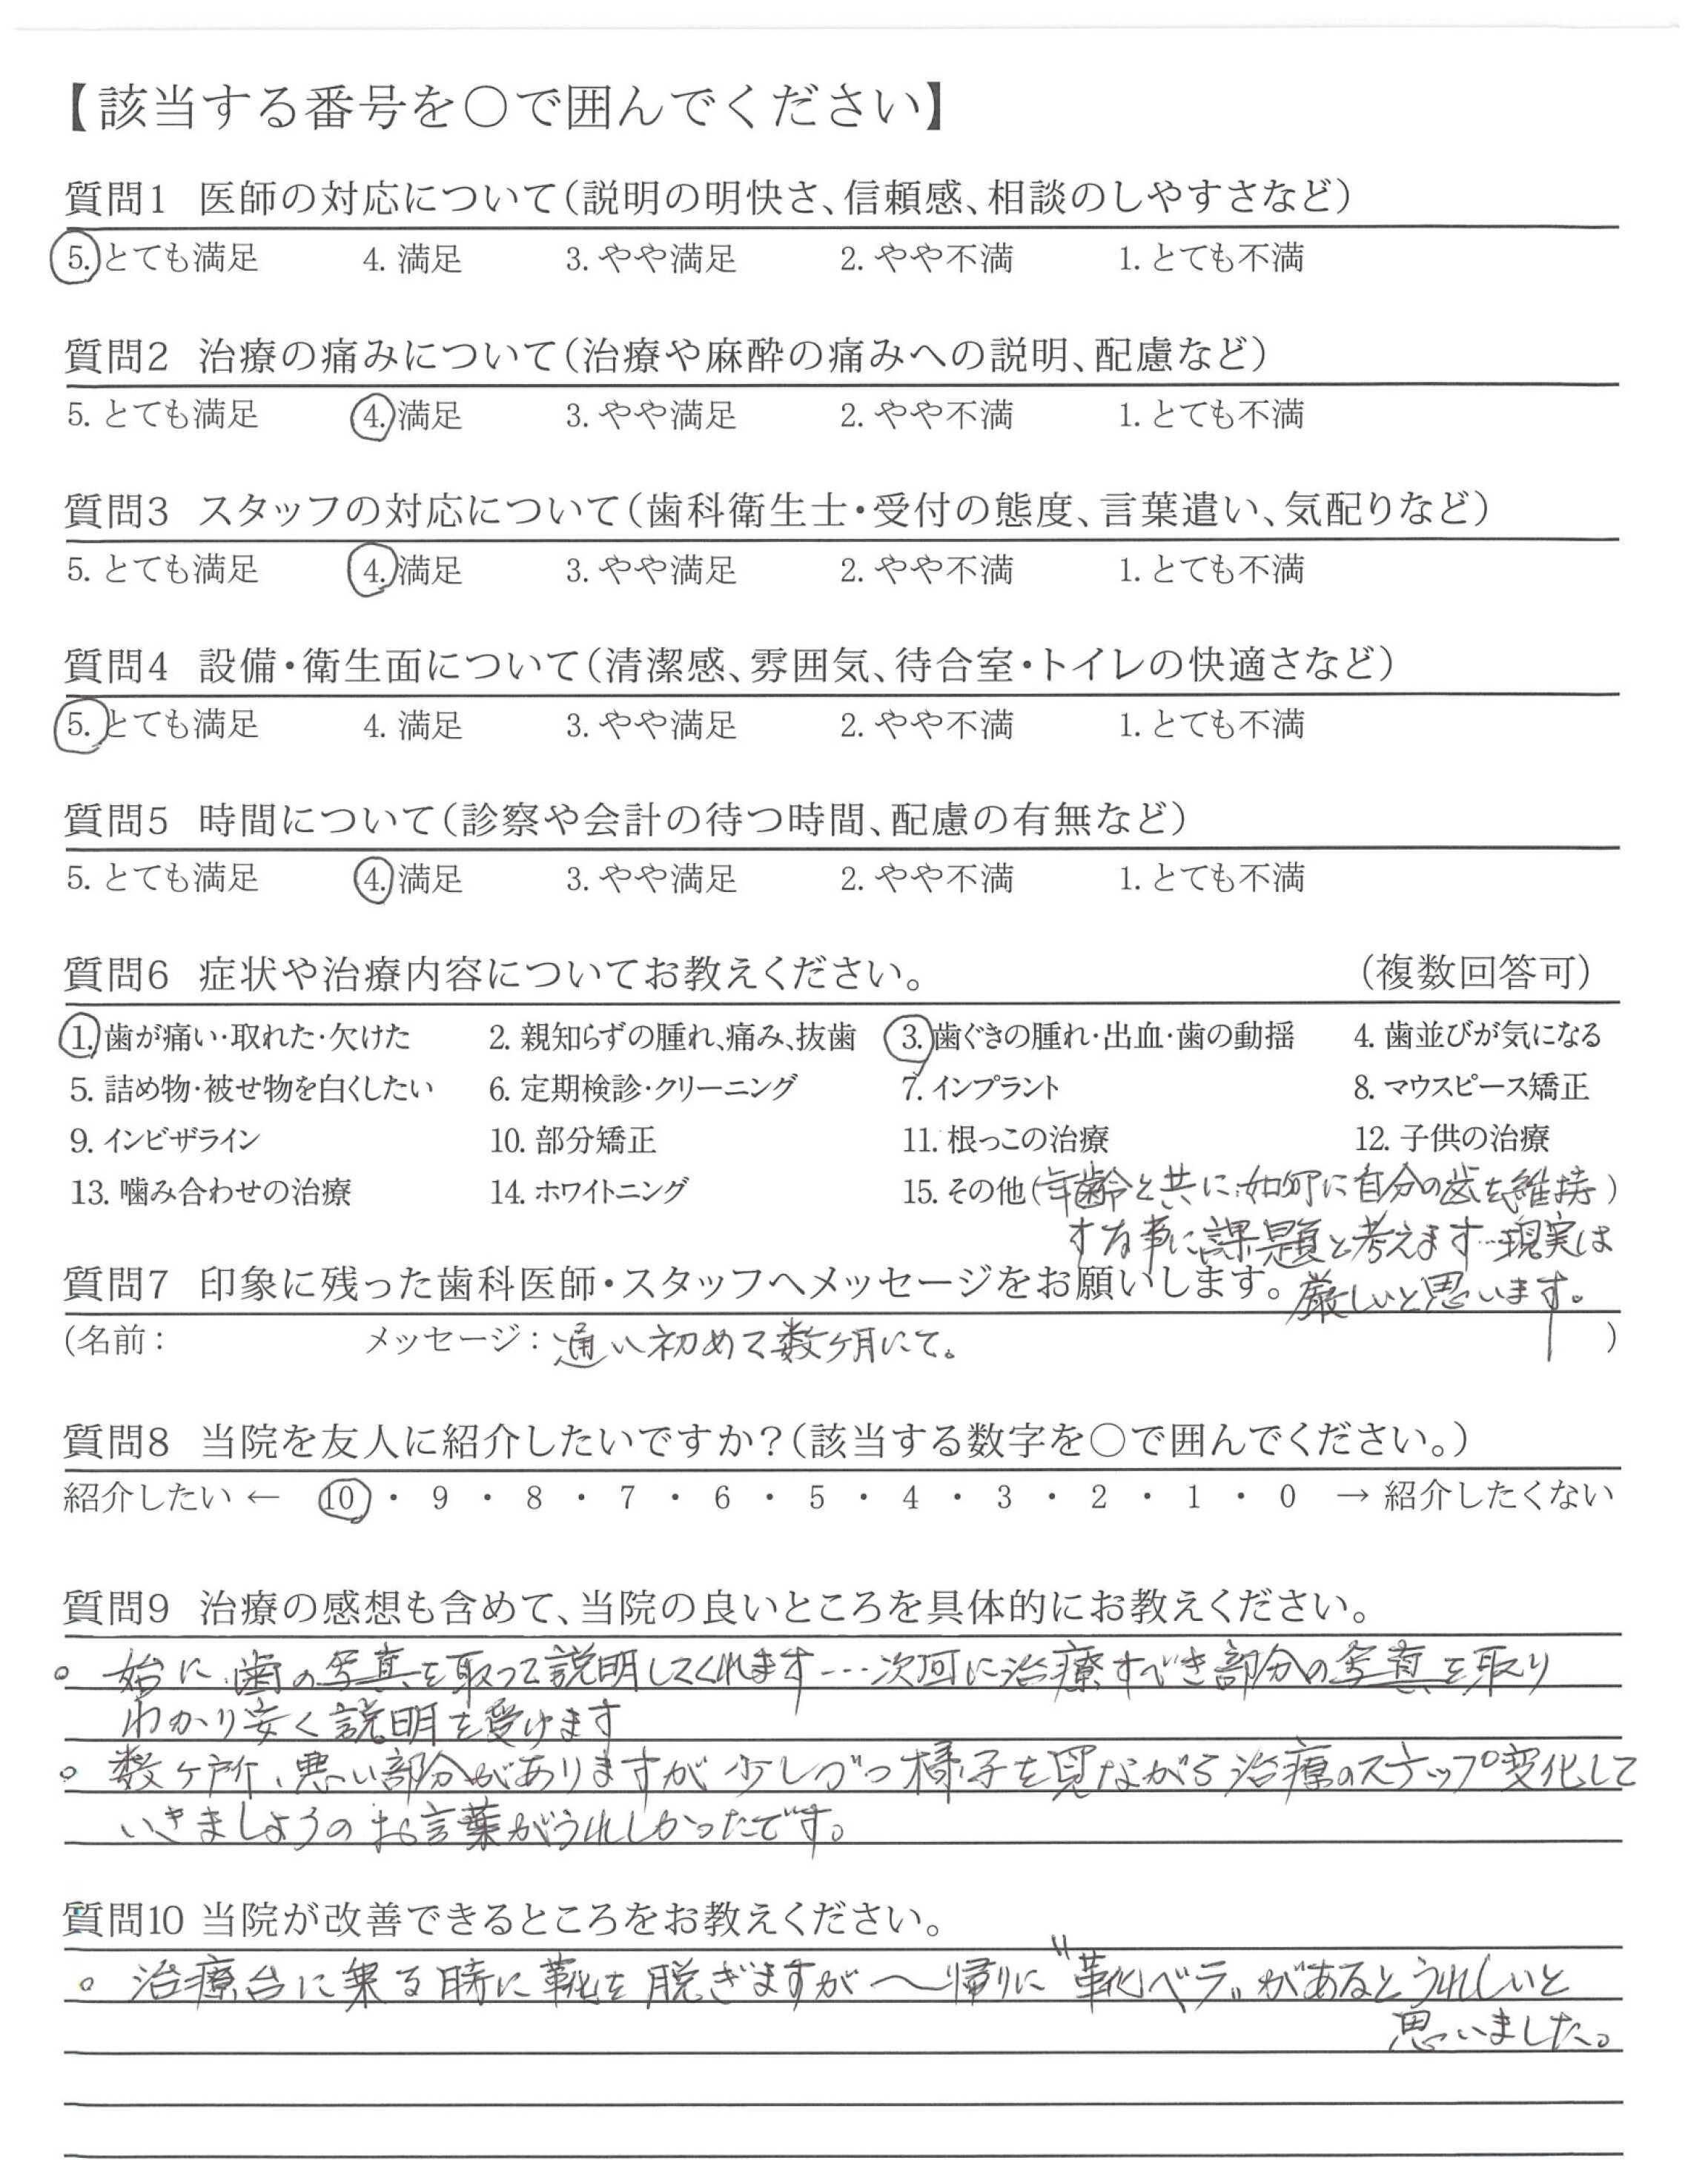 【該当する番号を〇で囲んでください】
質問1 医師の対応について(説明の明快さ、信頼感、相談のしやすさなど)
5. とても満足 4. 満足 3. やや満足 2. やや不満 1. とても不満
質問2 治療の痛みについて(治療や麻酔の痛みへの説明、配慮など)
5. とても満足 4. 満足 3. やや満足 2. やや不満 1. とても不満
質問3 スタッフの対応について(歯科衛生士・受付の態度、言葉遣い、気配りなど)
5. とても満足 4. 満足 3. やや満足 2. やや不満 1. とても不満
質問4 設備・衛生面について(清潔感、雰囲気、待合室・トイレの快適さなど)
5. とても満足 4. 満足 3. やや満足 2. やや不満 1. とても不満
質問5 時間について(診察や会計の待つ時間、配慮の有無など)
5. とても満足 4. 満足 3. やや満足 2. やや不満 1. とても不満
質問6 症状や治療内容についてお教えください。 (複数回答可)
1. 歯が痛い・取れた・欠けた 2. 親知らずの腫れ、痛み、抜歯 3. 歯ぐきの腫れ・出血・歯の動揺 4. 歯並びが気になる
5. 詰め物・被せ物を白くしたい 6. 定期検診・クリーニング 7. インプラント 8. マウスピース矯正
9. インビザライン 10. 部分矯正 11. 根っこの治療 12. 子供の治療
13. 噛み合わせの治療 14. ホワイトニング 15. その他(年齢と共に如何に自分の歯を維持)
する事に課題と考えます…現実は
質問7 印象に残った歯科医師・スタッフへメッセージをお願いします。厳しいと思います。
(名前: メッセージ:通い初めて数ヶ月にて。 )
質問8 当院を友人に紹介したいですか?(該当する数字を〇で囲んでください。)
紹介したい ← 10 ・ 9 ・ 8 ・ 7 ・ 6 ・ 5 ・ 4 ・ 3 ・ 2 ・ 1 ・ 0 → 紹介したくない
質問9 治療の感想も含めて、当院の良いところを具体的にお教えください。
。始に歯の写真を取って説明してくれます…次回に治療すべき部分の写真を取り
わかり安く説明を受けます
。数ヶ所、悪い部分がありますが少しづつ様子を見ながら治療のステップ変化して
いきましょうのお言葉がうれしかったです。
質問10 当院が改善できるところをお教えください。
。治療台に乗る時に靴を脱ぎますが〜帰りに"靴ベラ"があるとうれしいと
思いました。